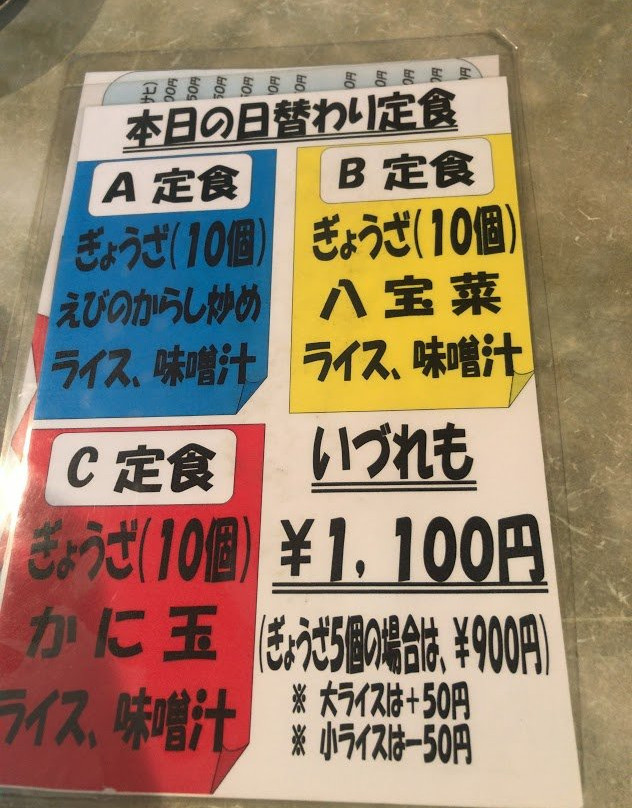 本日の日替わり定食
A 定食
ぎょうざ(10個)
えびのからし炒め
ライス、味噌汁
B 定食
ぎょうざ(10個)
八宝菜
ライス、味噌汁
C 定食
ぎょうざ(10個)
かに玉
ライス、味噌汁
いづれも
¥1,100円
(ぎょうざ5個の場合は、¥900円)
※ 大ライスは+50円
※ 小ライスは−50円